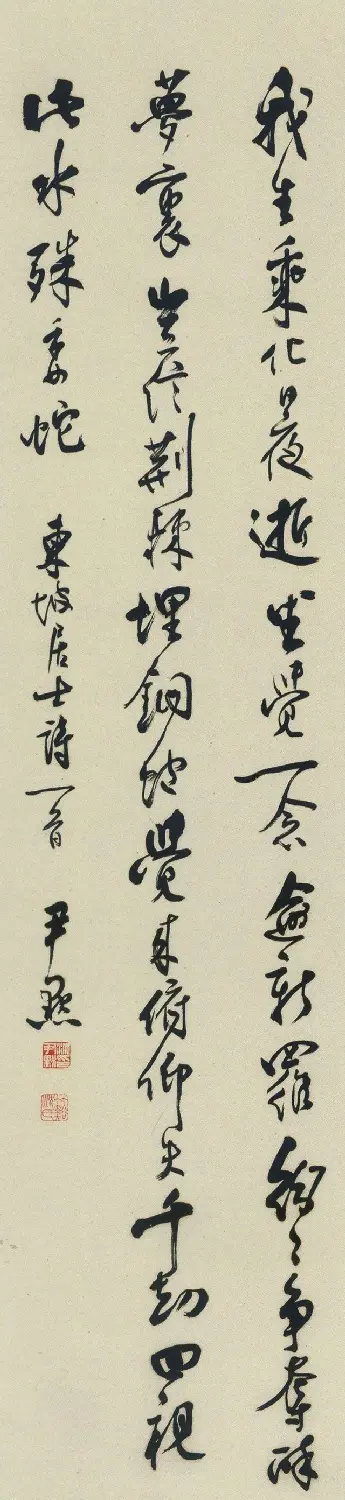 我生乘化日夜逝坐覺一念逾新羅紛〻爭奪醉
夢裏豈信荊棘埋銅駝覺來俯仰失千劫回視
此水殊委蛇 東坡居士詩一首 尹默